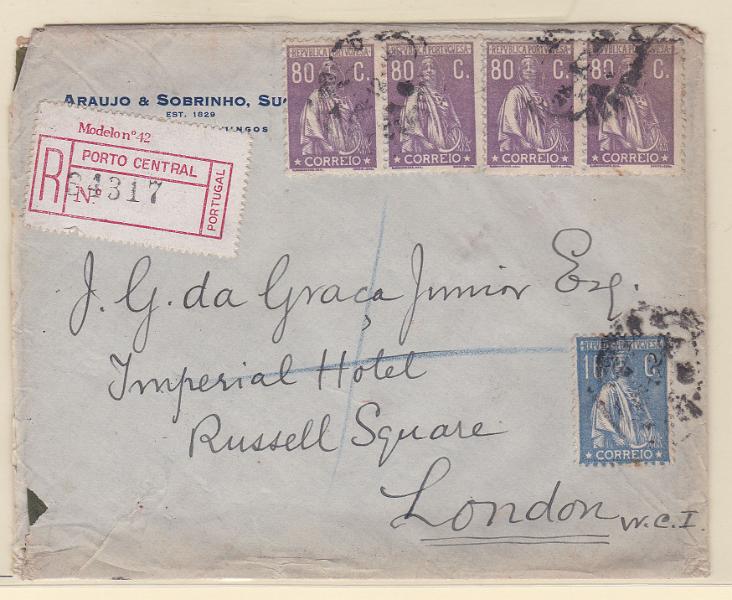 REPUBLICA PORTUGUESA REPUBLICA PORTUGUESA REPUBLICA PORTUGUESA REPUBLICA PORTUGUESA
80 C. 80 C. 80 C. 80 C.
CORREIO CORREIO CORREIO CORREIO
ARAUJO & SOBRINHO,
EST. 1829
Modelo nº 42
R PORTO CENTRAL
Nº 24317
PORTUGAL
J. G. da Graça Junior Esq.
Imperial Hotel
Russell Square
London W.C.I.
REPUBLICA PORTUGUESA
C.
CORREIO